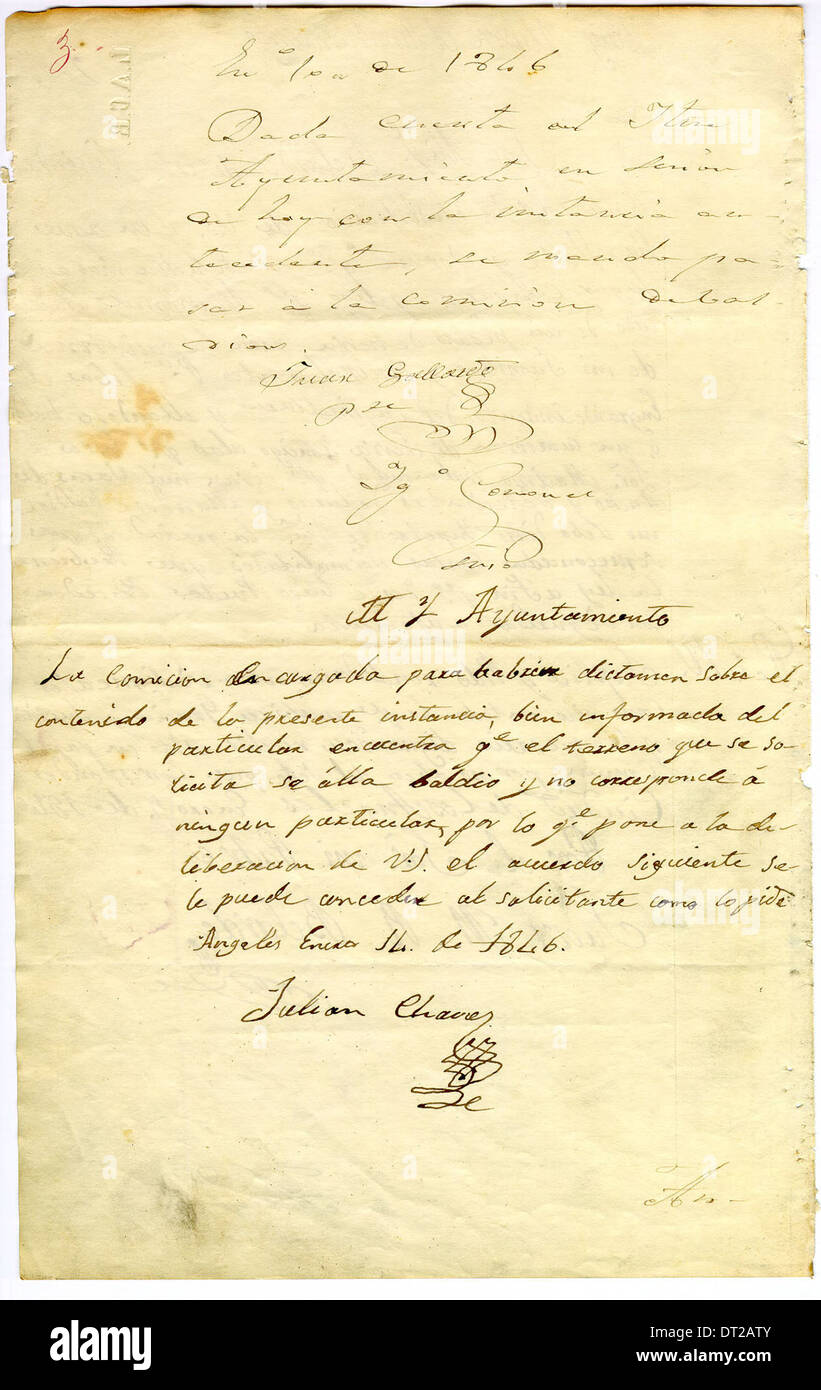 3.
L.A.C.R.
En.º 10 de 1846
Dada cuenta al Iltre
Ayuntamiento en secion
de hoy con la instancia an-
tecedente, se mando pa-
sar á la comision de bal-
dios.
Juan Gallardo
pse
Ygº Coronel
Srio
M Y Ayuntamiento
La Comicion encargada para habrir dictamen sobre el
contenido de la presente instancia, bien informada del
particular encuentra qe el terreno que se so-
licita se álla baldio y no corresponde á
ningun particular, por lo qe pone a la de-
liberacion de V.S. el acuerdo siguiente se
le puede conceder al solicitante como lo pide
Angeles Enero 14. de 1846.
Julian Chavez
An-
alamy
www.alamy.com
DT2ATY